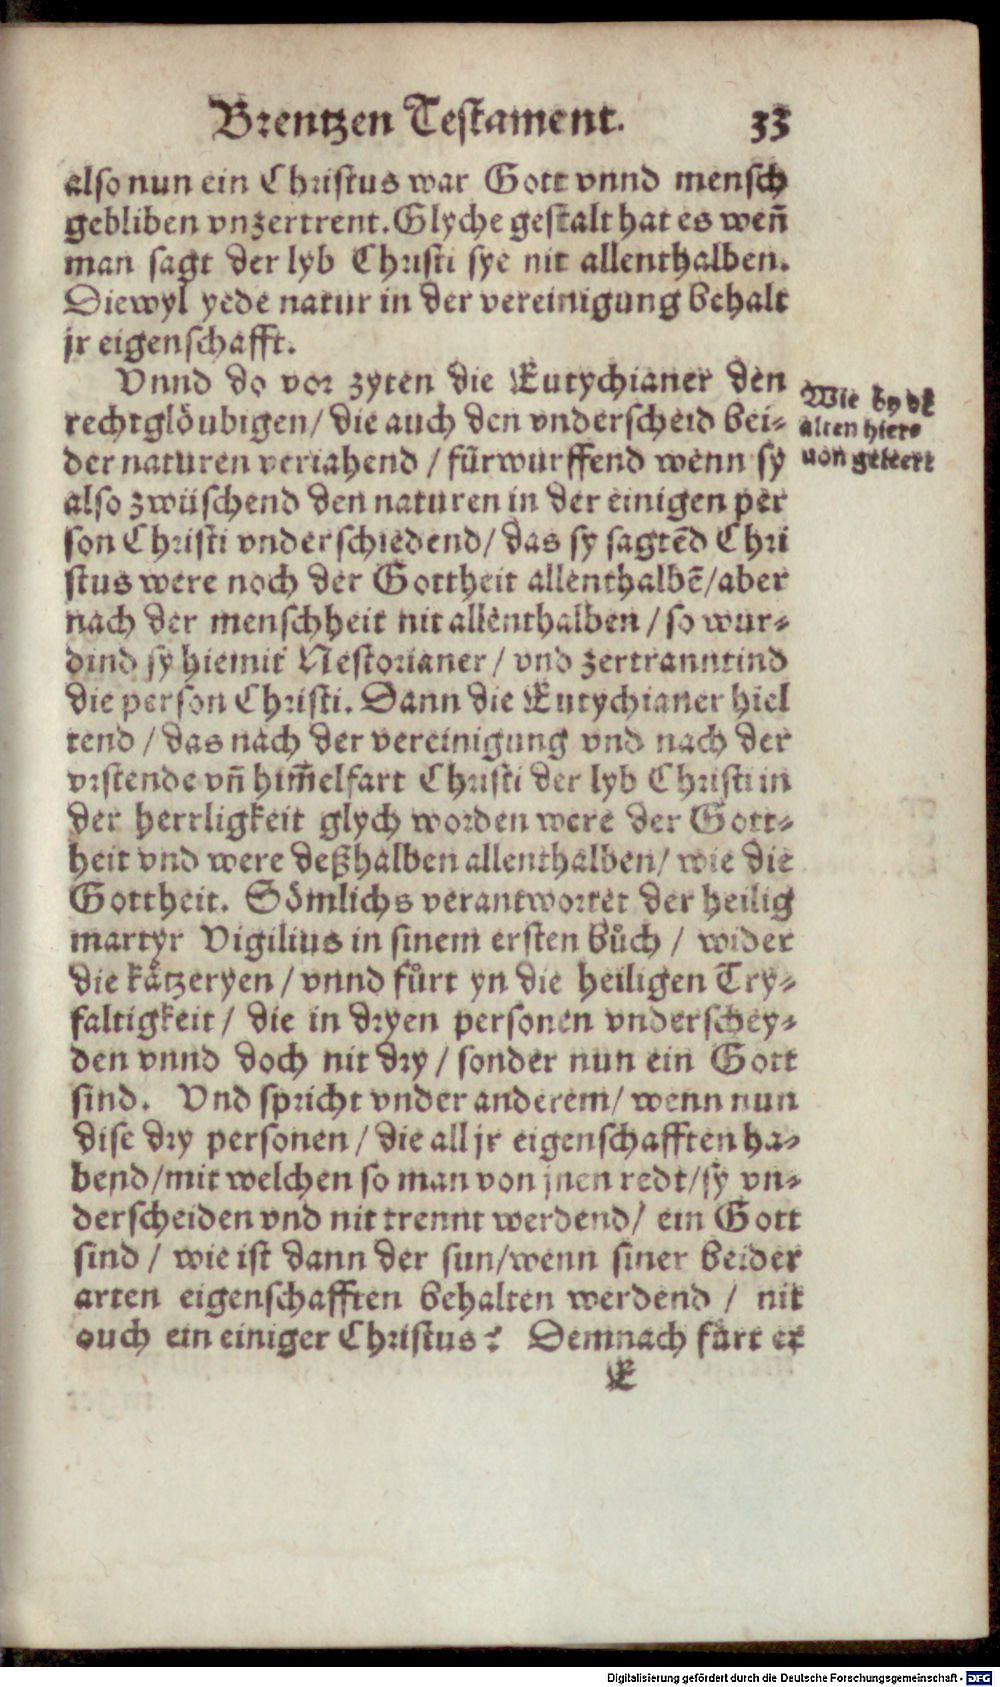 Brentzen Testament. 33
also nun ein Christus war Gott vnnd mensch
gebliben vnzertrent. Glyche gestalt hat es weñ
man sagt der lyb Christi sye nit allenthalben.
Diewyl yede natur in der vereinigung behalt
jr eigenschafft.
Vnnd do vor zyten die Eutychianer den
rechtglöubigen/ die auch den vnderscheid bei-
der naturen veriahend / fürwurffend wenn sy
also zwüschend den naturen in der einigen per
son Christi vnderschiedend/ das sy sagtẽd Chri
stus were noch der Gottheit allenthalbẽ/aber
nach der menschheit nit allenthalben / so wur-
dind sy hiemit Nestorianer / vnd zertranntind
die person Christi. Dann die Eutychianer hiel
tend / das nach der vereinigung vnd nach der
vrstende vñ him̃elfart Christi der lyb Christi in
der herrligkeit glych worden were der Gott-
heit vnd were deßhalben allenthalben/ wie die
Gottheit. Sömlichs verantwortet der heilig
martyr Vigilius in sinem ersten bůch / wider
die kätzeryen / vnnd fürt yn die heiligen Try-
faltigkeit / die in dryen personen vnderschey-
den vnnd doch nit dry / sonder nun ein Gott
sind. Vnd spricht vnder anderem/ wenn nun
dise dry personen / die all jr eigenschafften ha-
bend/mit welchen so man von jnen redt/sy vn-
derscheiden vnd nit trennt werdend/ ein Gott
sind / wie ist dann der sun/wenn siner beider
arten eigenschafften behalten werdend / nit
ouch ein einiger Christus? Demnach fart er
E
Wie by dẽ
alten hier-
uon geleert
Digitalisierung gefördert durch die Deutsche Forschungsgemeinschaft - DFG